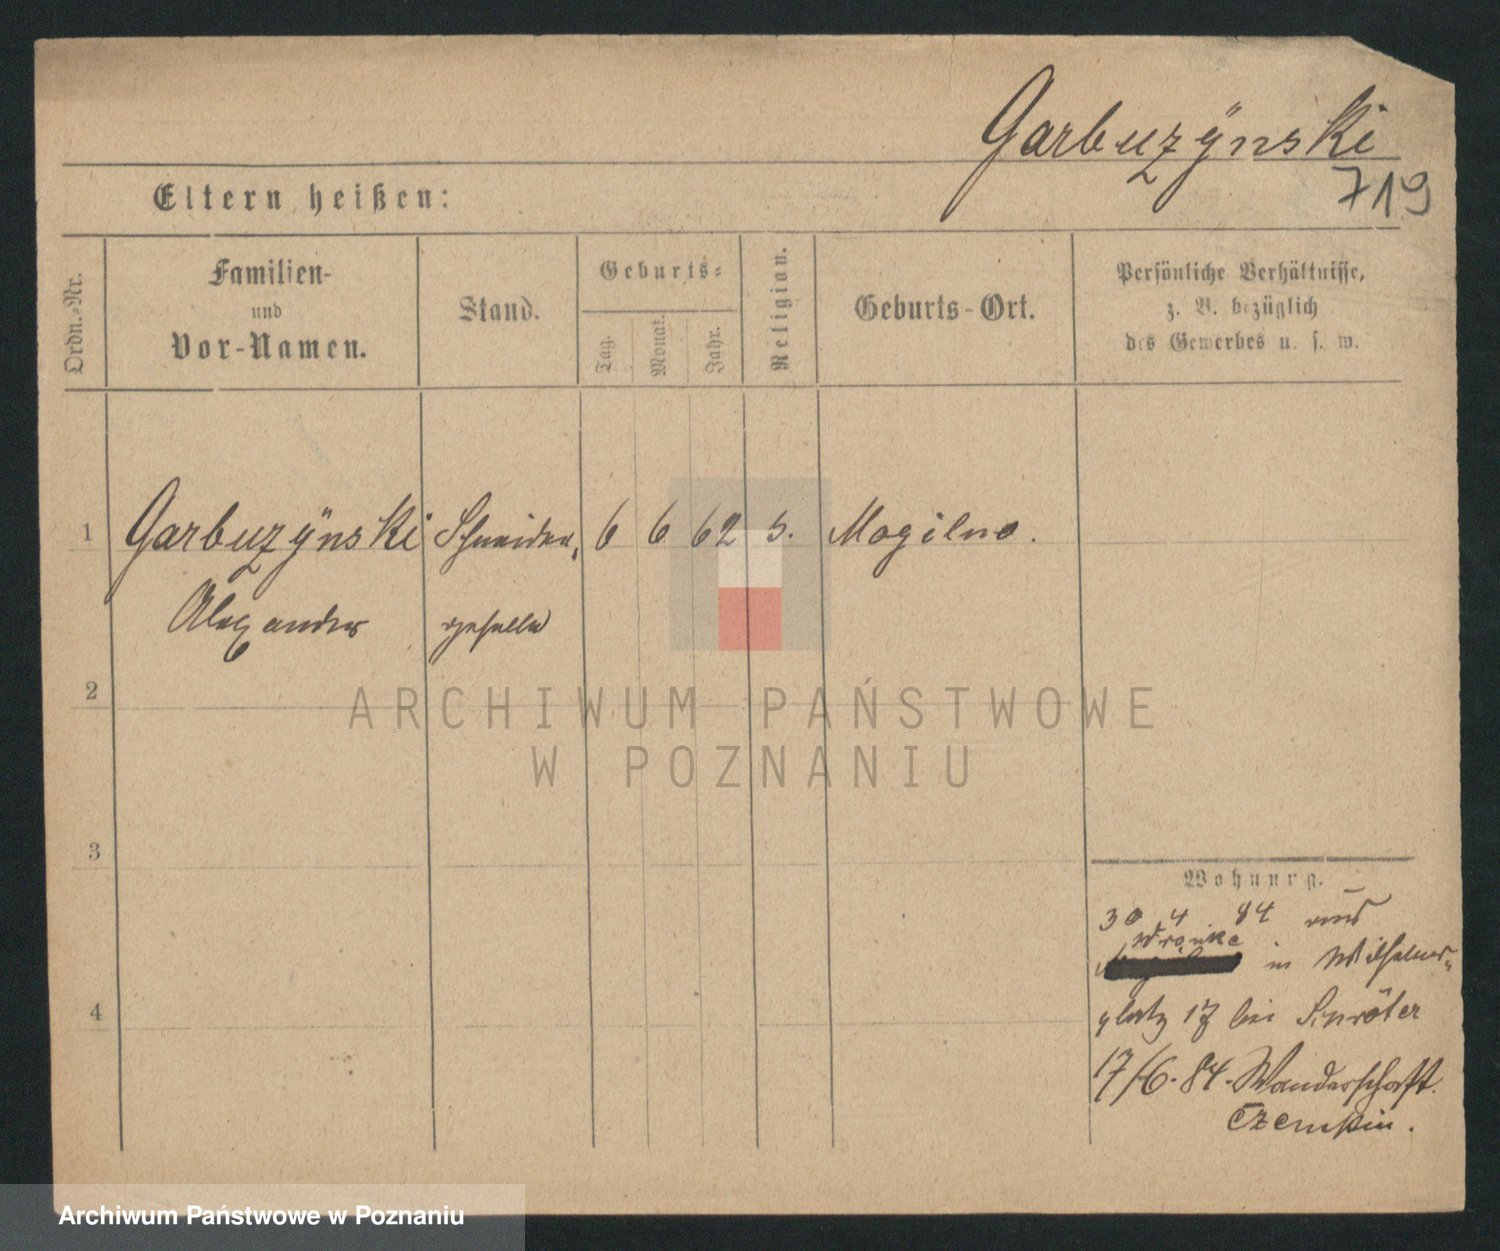 Garbuzÿnski
719
Eltern heißen:
Ordn.-Nr.
Familien-
und
Vor-Namen.
Stand.
Geburts-
Tag.
Monat.
Jahr.
Religion.
Geburts-Ort.
Persönliche Verhältnisse,
z. B. bezüglich
des Gewerbes u. s. w.
1 Garbuzÿnski Schneider- 6 6 62 Mogilno.
Alexander geselle
2
ARCHIWUM PAŃSTWOWE
W POZNANIU
3
Wohnung.
30 4 84 aus
Wronke
in Wilhelms-
platz 17 bei
4
17/6. 84. Wanderschaft.
Czempin.
Archiwum Państwowe w Poznaniu